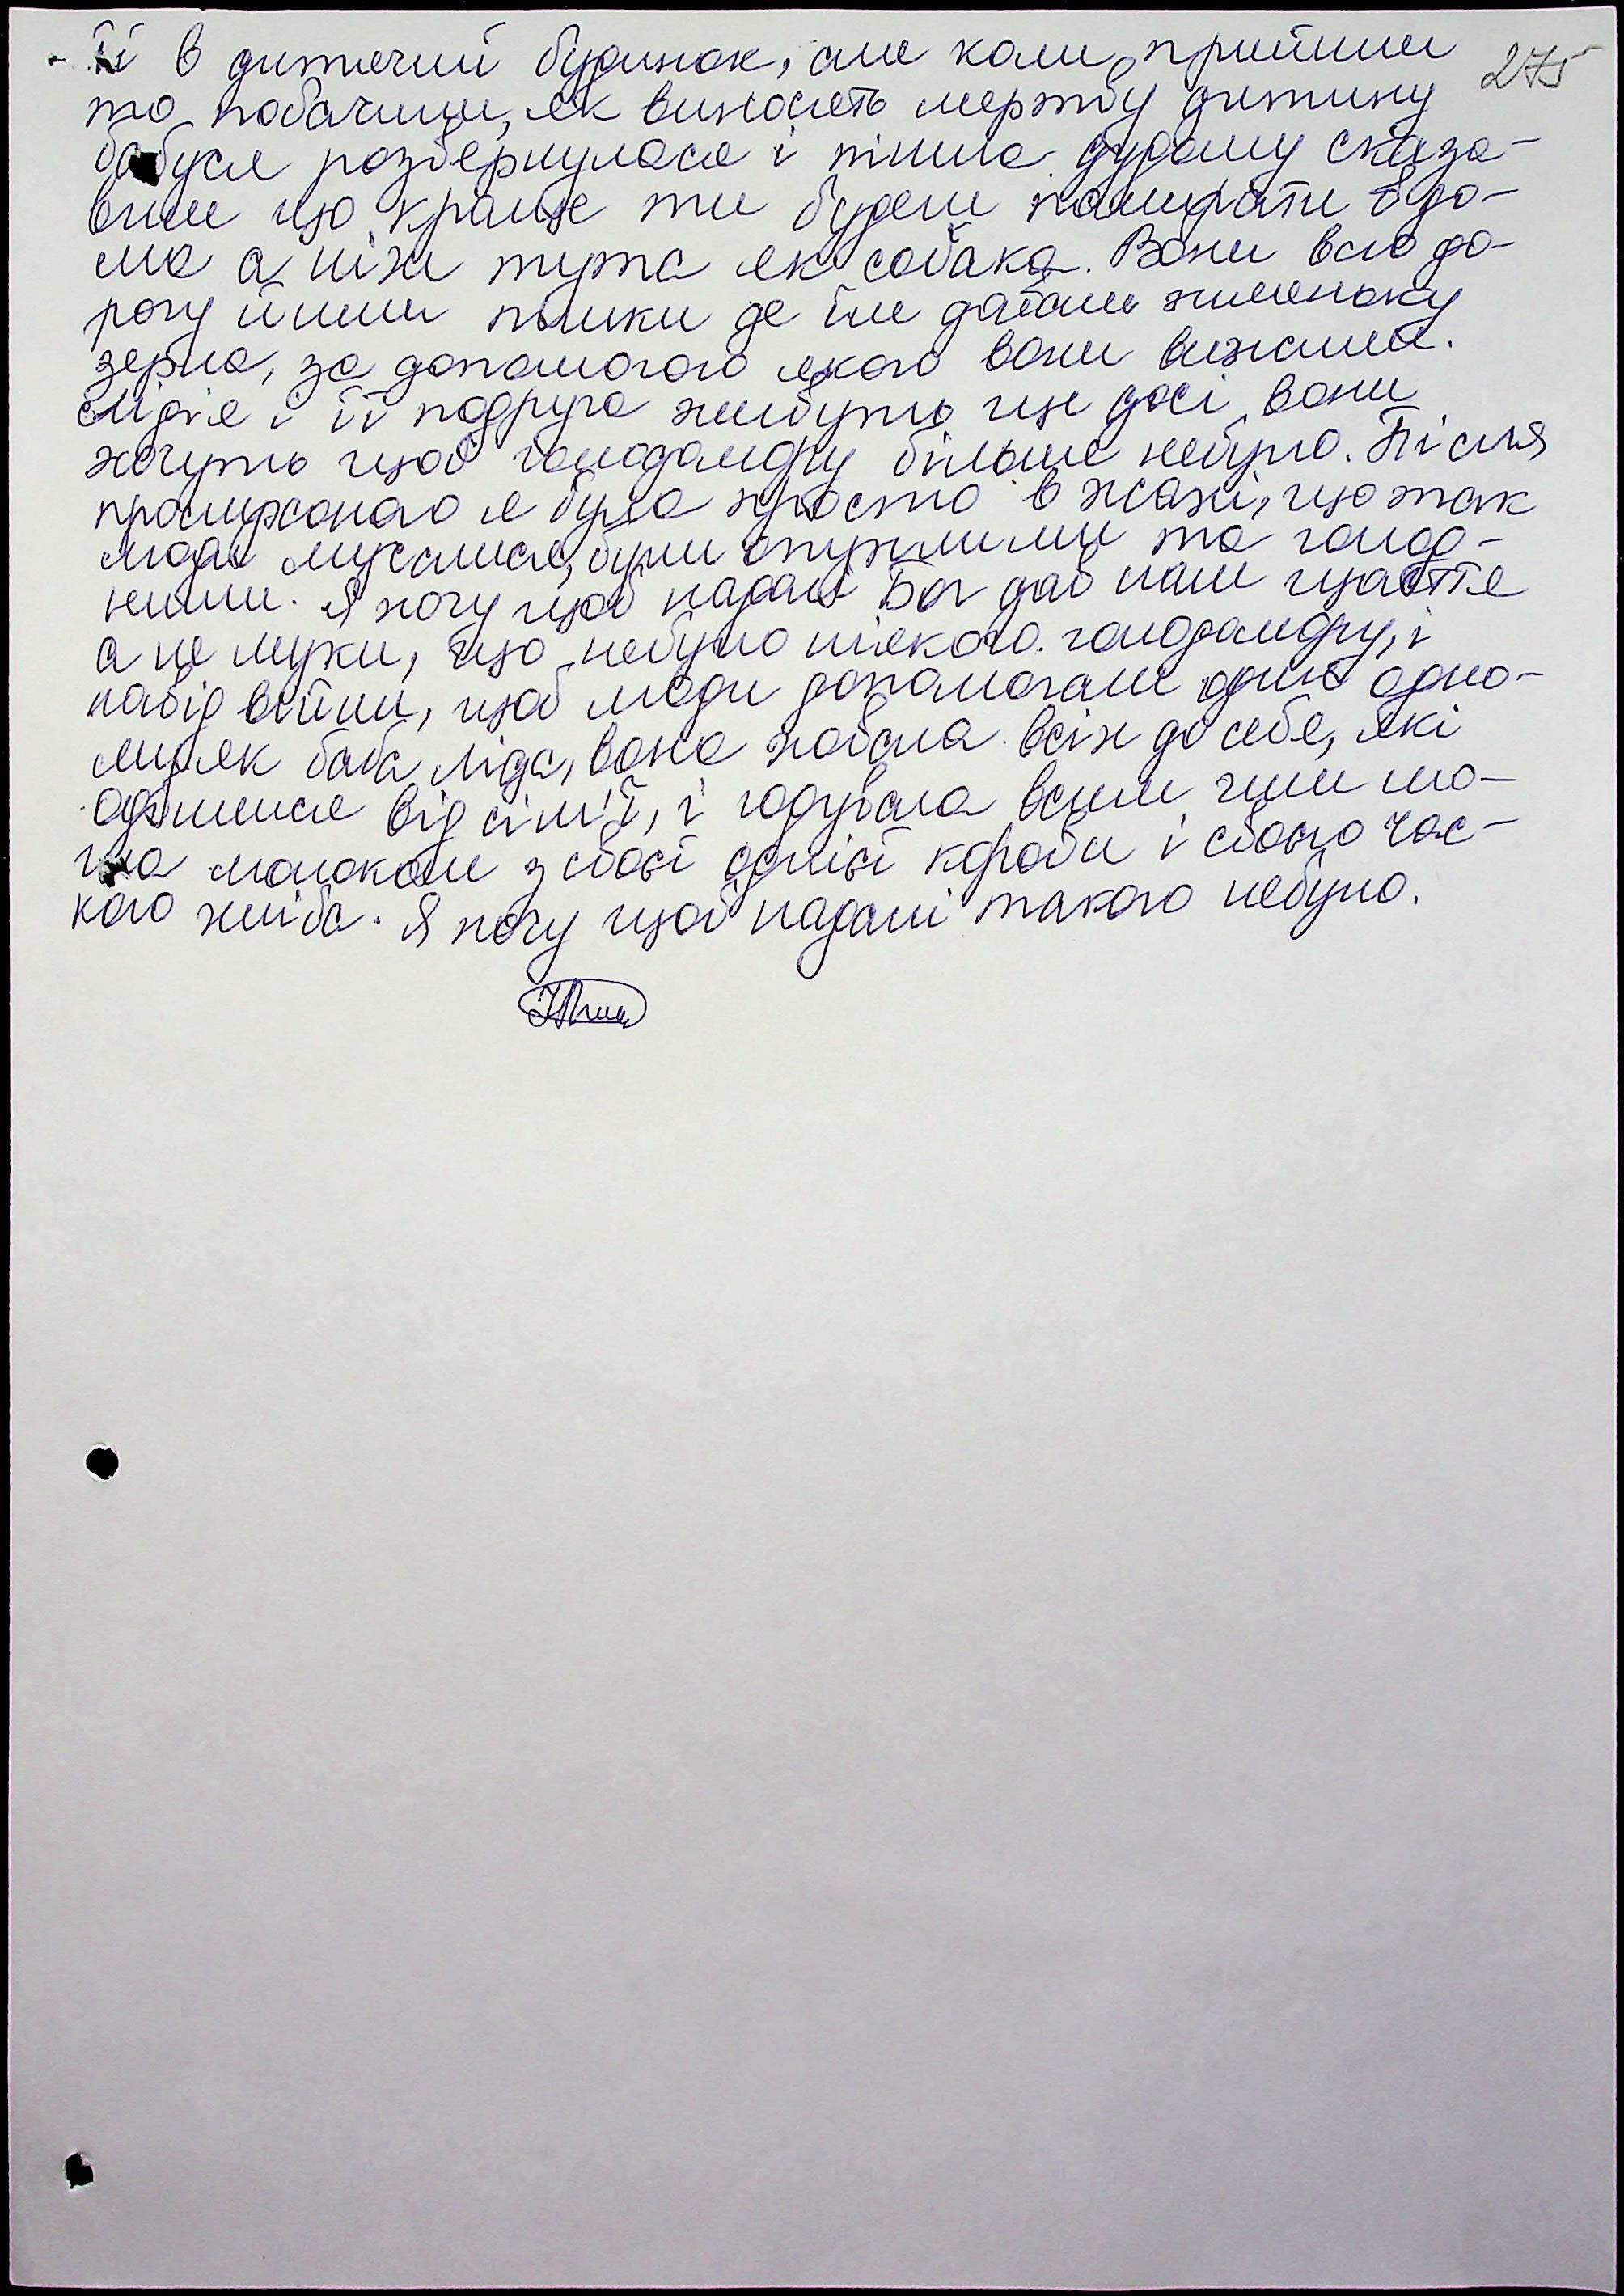 її в дитячий будинок, але коли прийшли
275
то побачили, як виносять мертву дитину
бабуся розвернулася і пішла дудому сказа-
вши що краще ти будеш помирати вдо-
ма а ніж тута як собака. Вони всю до-
рогу йшли пішки де їм давали жменьку
зерна, за допомогою якого вони вижили.
Лідія і її подруга живуть ще досі, вони
хочуть щоб голодамору більше небуло. Після
прослуханого я була просто в жахі, що так
люди мучалися, були опухлими та голод-
ними. Я хочу щоб надалі Бог дав нам щастя
а не муки, що небуло ніякого голодамору, і
навід війни, щоб люди допомогали один одно-
му, як баба Ліда, вона ховала всіх до себе, які
одбилися від сім'ї, і годувала всим чим мо-
гла молоком з своєї однієї корови і свого час-
кого хліба. Я хочу щоб надалі такого небуло.